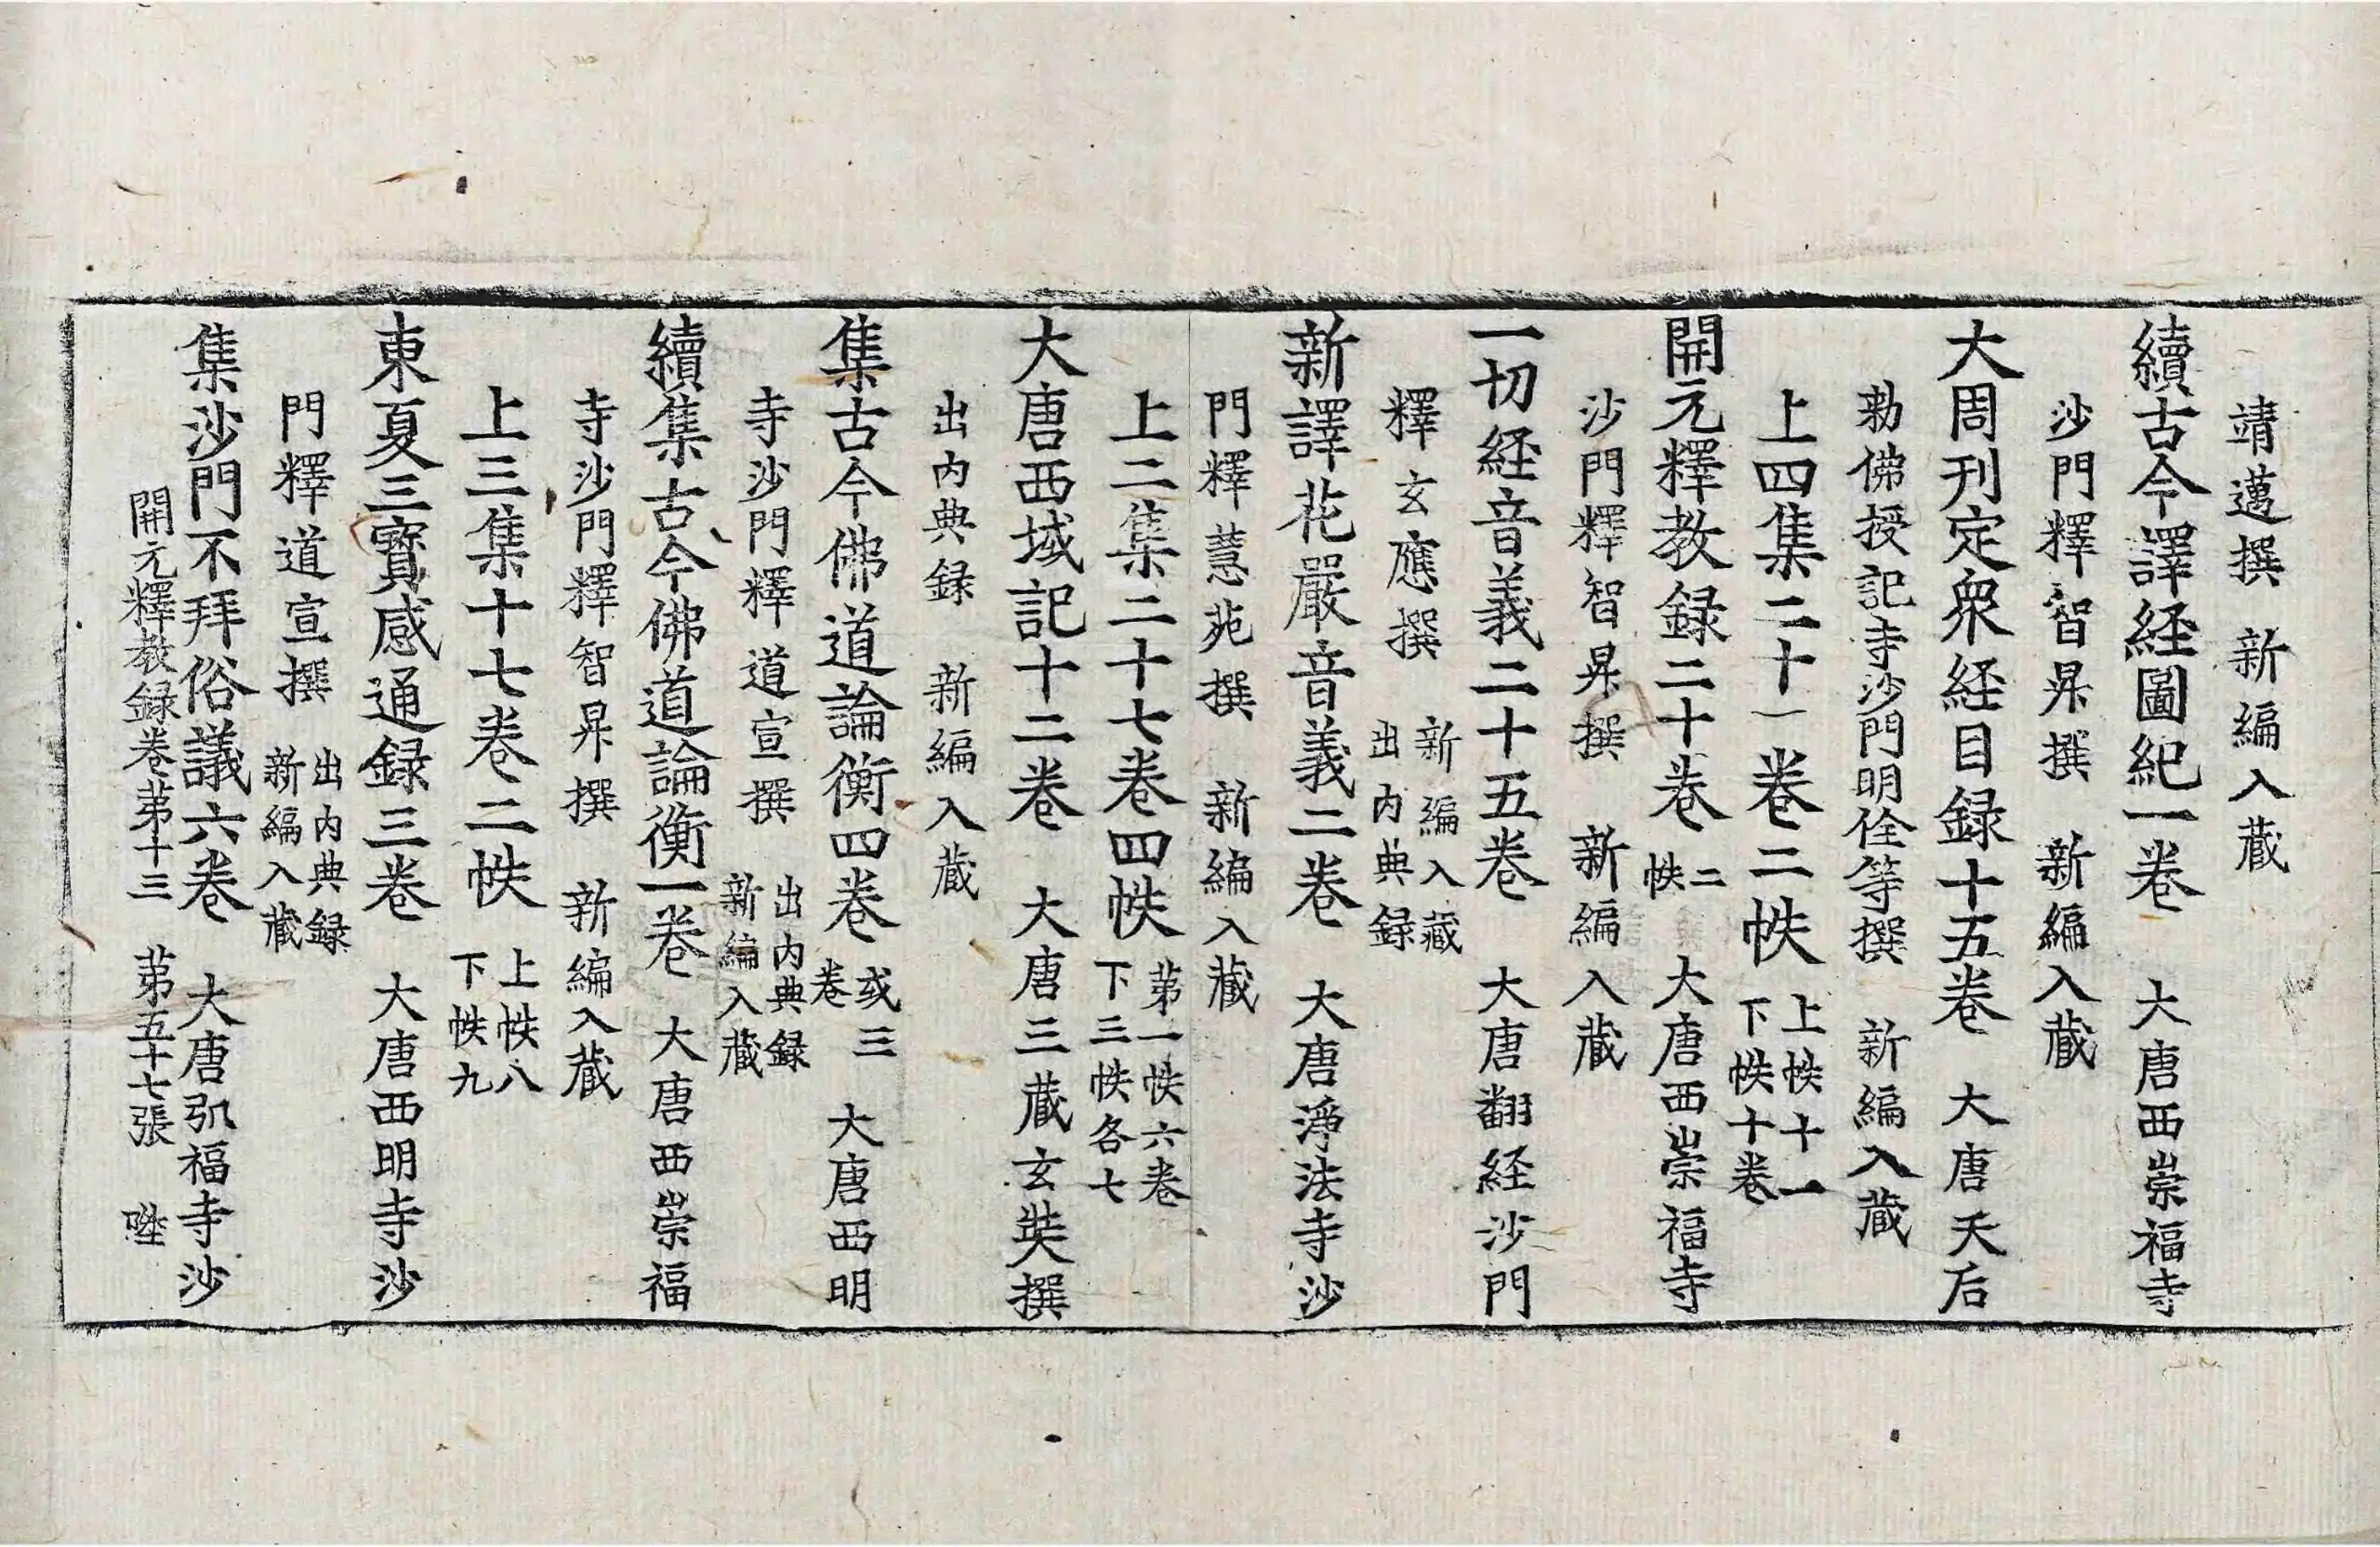 靖邁撰 新編入藏
續古今譯経圖紀一卷 大唐西崇福寺
沙門釋智昇撰 新編入藏
大周刊定衆経目録十五卷 大唐天后
勅佛授記寺沙門明佺等撰 新編入藏
上四集二十一卷二帙 上帙十一
下帙十卷
開元釋教録二十卷 二
帙 大唐西崇福寺
沙門釋智昇撰 新編入藏
一切経音義二十五卷 大唐翻経沙門
釋玄應撰 新編入藏
出内典録
新譯花嚴音義二卷 大唐淨法寺沙
門釋慧苑撰 新編入藏
上二集二十七卷四帙 苐一帙六卷
下三帙各七
大唐西域記十二卷 大唐三藏玄奘撰
出内典録 新編入藏
集古今佛道論衡四卷 或三
卷 大唐西明
寺沙門釋道宣撰 出内典録
新編入藏
續集古今佛道論衡一卷 大唐西崇福
寺沙門釋智昇撰 新編入藏
上三集十七卷二帙 上帙八
下帙九
東夏三寶感通録三卷 大唐西明寺沙
門釋道宣撰 出内典録
新編入藏
集沙門不拜俗議六卷 大唐弘福寺沙
開元釋教録卷苐十三 苐五十七張